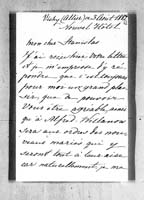 Vichy (Allier) 3 Août 188
Nouvel Hôtel.
Mon cher Stanislas
J'ai reçu hier votre lettre
et je m'empresse d'y ré-
pondre que c'est toujours
pour moi un grand plai-
sir, que de pouvoir
vous être agréable, ainsi
qu'à Alfred.
sera aux ordres des nou-
veaux mariés qui y
seront tout à leur aise
car naturellement, je ne